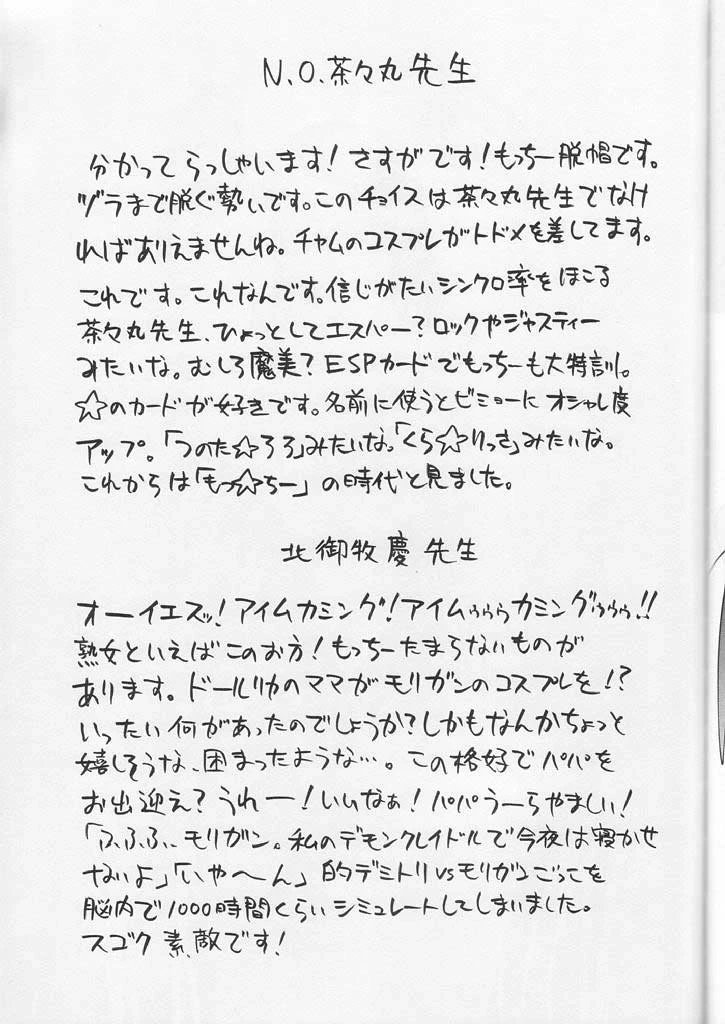 N.O.茶々丸先生
分かってらっしゃいます!さすがです!もっちー脱帽です。
ヅラまで脱ぐ勢いです。このチョイスは茶々丸先生でなけ
ればありえませんね。チャムのコスプレがトドメを差してます。
これです。これなんです。信じがたいシンクロ率をほこる
茶々丸先生、ひょっとしてエスパー?ロックやジャスティー
みたいな。むしろ魔美?ESPカードでもっちーも大特訓。
☆のカードが好きです。名前に使うとビミョーにオシャレ度
アップ。「つのた☆ろう」みたいな。「くら☆りっさ」みたいな。
これからは「もっ☆ちー」の時代と見ました。
北御牧慶先生
オーイエスッ!アイムカミング!アイムゥゥゥカミングゥゥゥ!!
熟女といえばこのお方!もっちーたまらないものが
あります。ドールリカのママがモリガンのコスプレを!?
いったい何があったのでしょうか?しかもなんかちょっと
嬉しそうな、困まったような…。この格好でパパを
お出迎え?うれー!いいなぁ!パパうーらやましい!
「ふふふ…モリガン。私のデモンクレイドルで今夜は寝かせ
ないよ」「いやーん」的デミトリvsモリガンごっこを
脳内で1000時間くらいシミュレートしてしまいました。
スゴク素敵です!